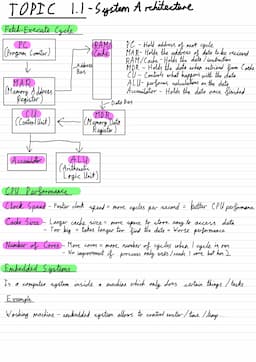 TOPIC 1.1 - System Architecture
Fetch-Execute Cycle
PC
(Program Counter)
RAM/
Cache
Address
Bus
MAR
(Memory Address
Register)
Data Bus
CU
(Control Unit)
MDR
(Memory Data
Register)
Accumulator
ALU
(Arithmetic
Logic Unit)
PC - Hold address of next cycle
MAR - Holds the address of data to be recieved
RAM/Cache - Holds the data/instruction
MDR - Holds the data when retrieved from Cache
CU - Controls what happens with the data
ALU - performs calculations on the data
Accumulator - Holds the data once finished
CPU Performance
Clock Speed - Faster clock speed = more cycles per second = better CPU performance
Cache Size - Larger cache size = more space to store easy to access data
- Too big = takes longer to find the data = Worse performance
Number of Cores - More cores = more number of cycles when 1 cycle is run
- No improvement if process only uses/needs 1 core but has 2
Embedded Systems
Is a computer system inside a machine which only does certain things/tasks
Example
Washing machine - embedded system allows to control water/time/temp...